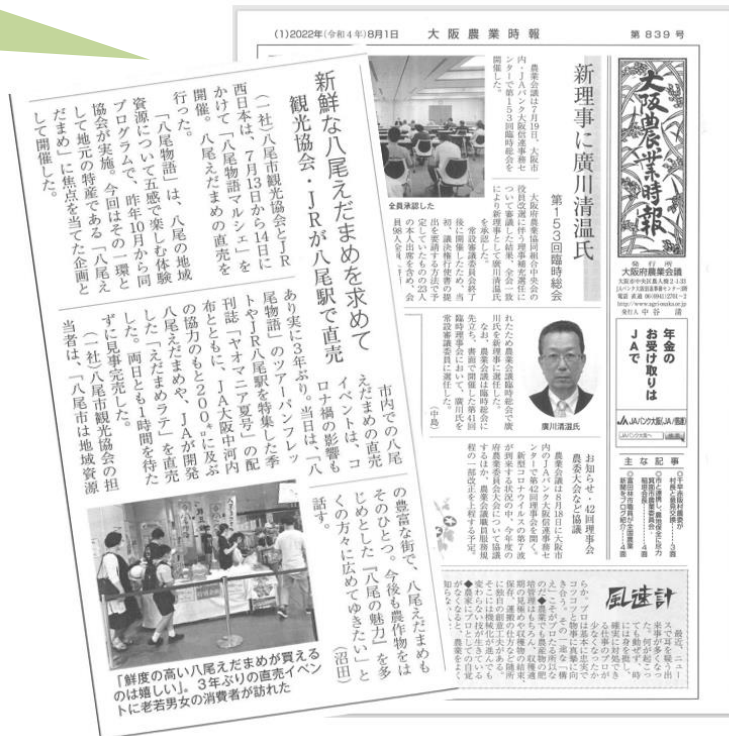 (1)2022年(令和4年)8月1日
大阪農業時報
第839号
大阪農業時報
発行所
大阪府農業会議
発行人 中谷 清
年金の
お受け取りは
JAで
JAバンク大阪(JA/信連)
主な記事
新理事に廣川清温氏
第153回臨時総会
農業会議は7月19日、大阪市
内・JAバンク大阪信連事務セ
ンターで第153回臨時総会を
開催した。
全員承認した
大阪府農業協同組合中央会の
役員改選に伴う理事補充選任に
ついて審議した結果、全会一致
により新理事として廣川清温氏
を承認した。
常設審議委員会終了
後に開催したため、当
初、議決権行使書の提
出を要請する方法で予
定していたものの23人
の本人出席を含め、会
れたため農業会議臨時総会で廣
川氏を新理事に選任した。
なお、農業会議は臨時総会に
先立ち、書面で開催した第41回
臨時理事会において、廣川氏を
常設審議委員に選任した。
(中島)
廣川清温氏
お知らせ・42回理事会
農委大会など協議
農業会議は8月18日に大阪市
内のJAバンク大阪信連事務セ
ンターで第42回理事会を開く。
新型コロナウイルスの第7波
が到来する状況の中、今年度の
府農業委員会大会について協議
するほか、農業会議職員服務規
程の一部改正を上程する予定。
風速計
新鮮な八尾えだまめを求めて
観光協会・JRが八尾駅で直売
(一社)八尾市観光協会とJR
西日本は、7月13日から14日に
かけて「八尾物語マルシェ」を
開催。八尾えだまめの直売を
行った。
「八尾物語」は、八尾の地域
資源について五感で楽しむ体験
プログラムで、昨年10月から同
協会が実施。今回はその一環と
して地元の特産である「八尾え
だまめ」に焦点を当てた企画と
して開催した。
市内での八尾
えだまめの直売
イベントは、コ
ロナ禍の影響も
あり実に3年ぶり。当日は、「八
尾物語」のツアーパンフレッ
トやJR八尾駅を特集した季
刊誌「ヤオマニア夏号」の配
布とともに、JA大阪中河内
の協力のもと200㌔に及ぶ
八尾えだまめや、JAが開発
した「えだまめラテ」を直売
した。両日とも1時間を待た
ずに見事完売した。
(一社)八尾市観光協会の担
当者は、「八尾市は地域資源
の豊富な街で、八尾えだまめも
そのひとつ。今後も農作物をは
じめとした『八尾の魅力』を多
くの方々に広めてゆきたい」と
話す。
(沼田)
「鮮度の高い八尾えだまめが買える
のは嬉しい」。3年ぶりの直売イベン
トに老若男女の消費者が訪れた